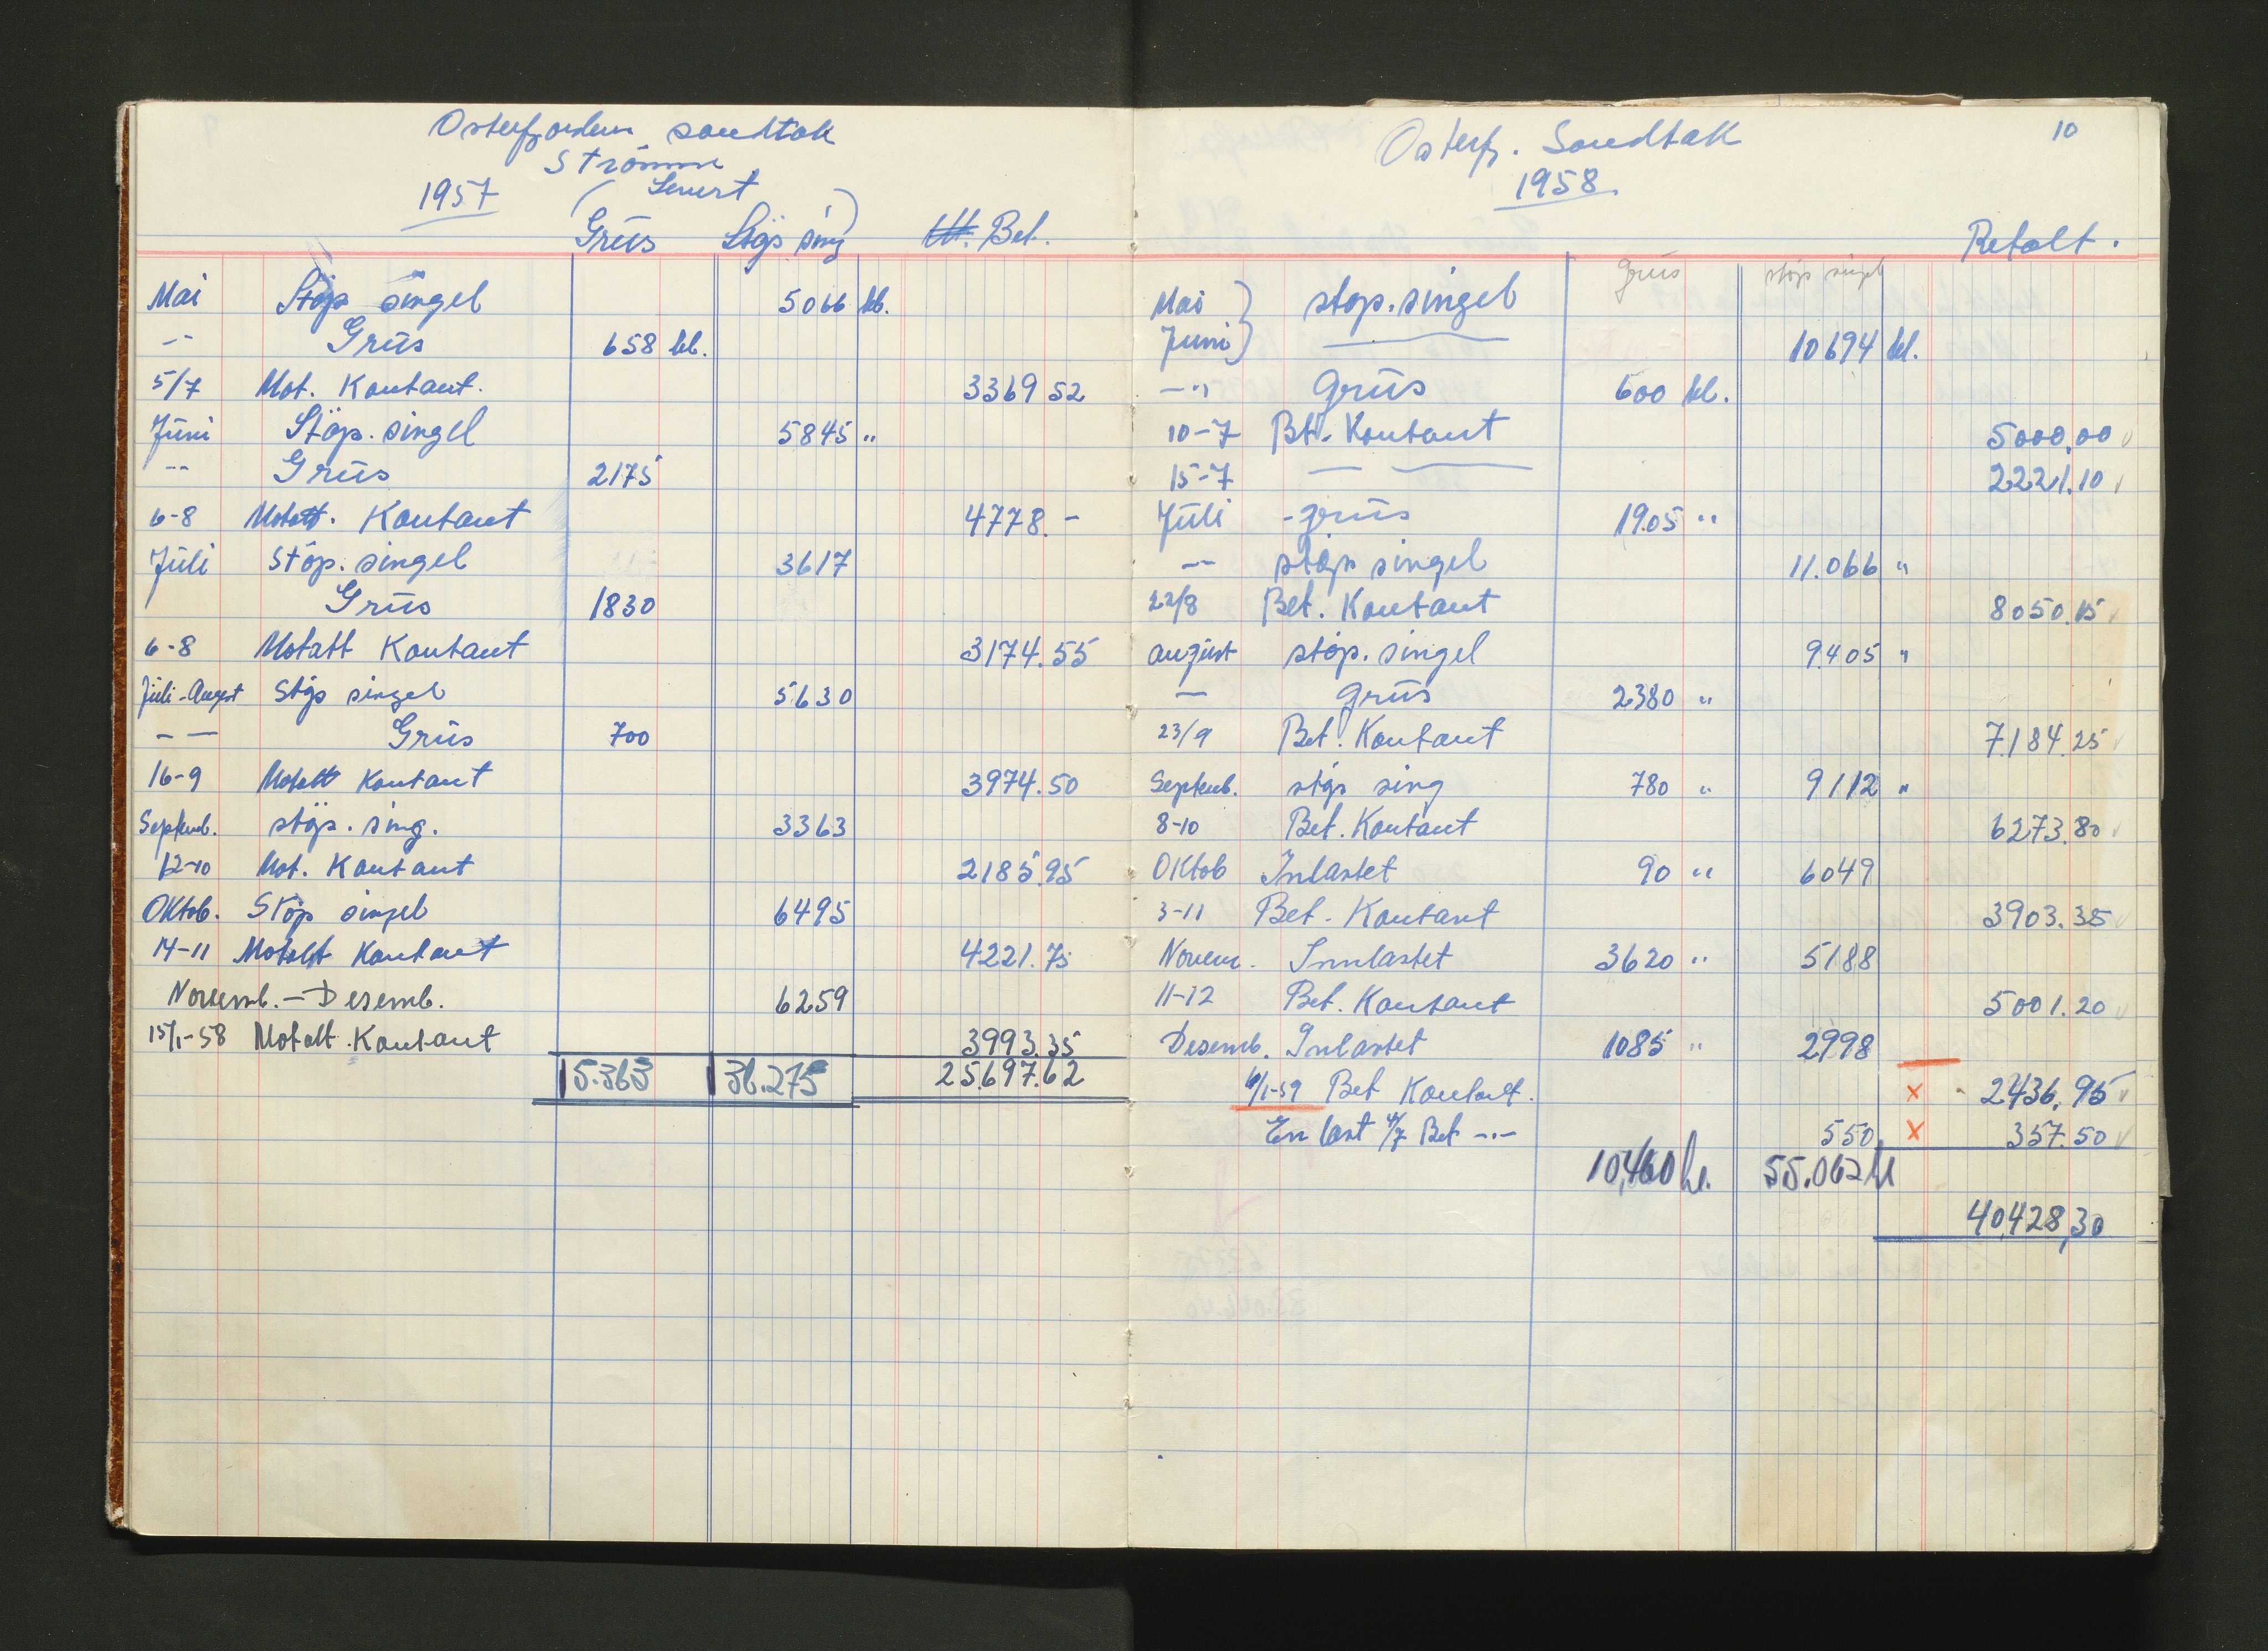 Osterfjorden sandtak
Strömme
1957 ( Levert )
Grüs Støp sing Bet.
Mai Støp singel 5066 hl.
-- Grüs 658 hl.
5/7 Mot. Kontant. 3369 52
Jüni Støp. singel 5845 "
-- Grüs 2175
6-8 Motatt. Kontant 4778.-
Jüli Støp. singel 3617
Grüs 1830
6-8 Motatt Kontant 3174.55
Jüli-August Støp singel 5630
-- Grüs 700
16-9 Motatt Kontant 3974.50
Septemb. støp. sing. 3363
12-10 Mot. Kontant 2185.95
Oktob. Støp singel 6495
14-11 Motatt Kontant 4221.75
Novemb.-Desemb. 6259
15/1-58 Motatt Kontant 3993.35
5.363 36.275 25.697.62
10
Osterfj. Sandtak
1958
Betalt.
grüs støp singel
Mai } støp. singel
Juni } 10694 hl.
-"- Grüs 600 hl.
10-7 Bt. Kontant 5000.00
15-7 — — 2221.10
Jüli - grüs 1905 "
-- støp singel 11.066 "
22/8 Bet. Kontant 8050.15
august støp. singel 9405 "
— grüs 2380 "
23/9 Bet. Kontant 7.184.25
Septemb. støp sing 780 " 9112 "
8-10 Bet. Kontant 6273.80
Oktob Inlastet 90 " 6049
3-11 Bet. Kontant 3903.35
Novem. Innlastet 3620 " 5188
11-12 Bet. Kontant 5001.20
Desemb. Inlastet 1085 " 2998
6/1-59 Bet Kontant. x 2436,95
En last 4/7 Bet -"- 550 x 357.50
10,460 hl. 55.062 hl
40,428,30